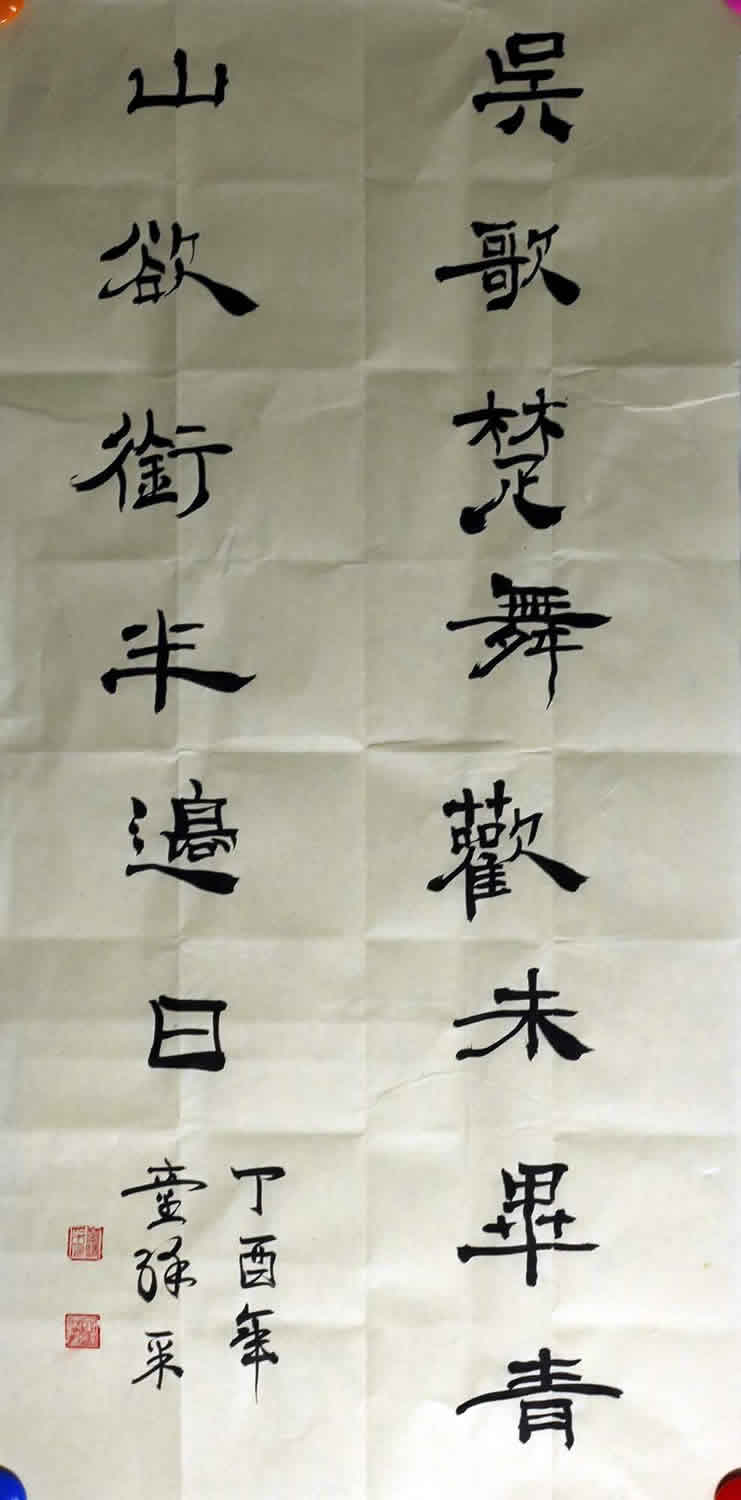 吳歌楚舞歡未畢青
山欲銜半邊日
丁酉年
童采